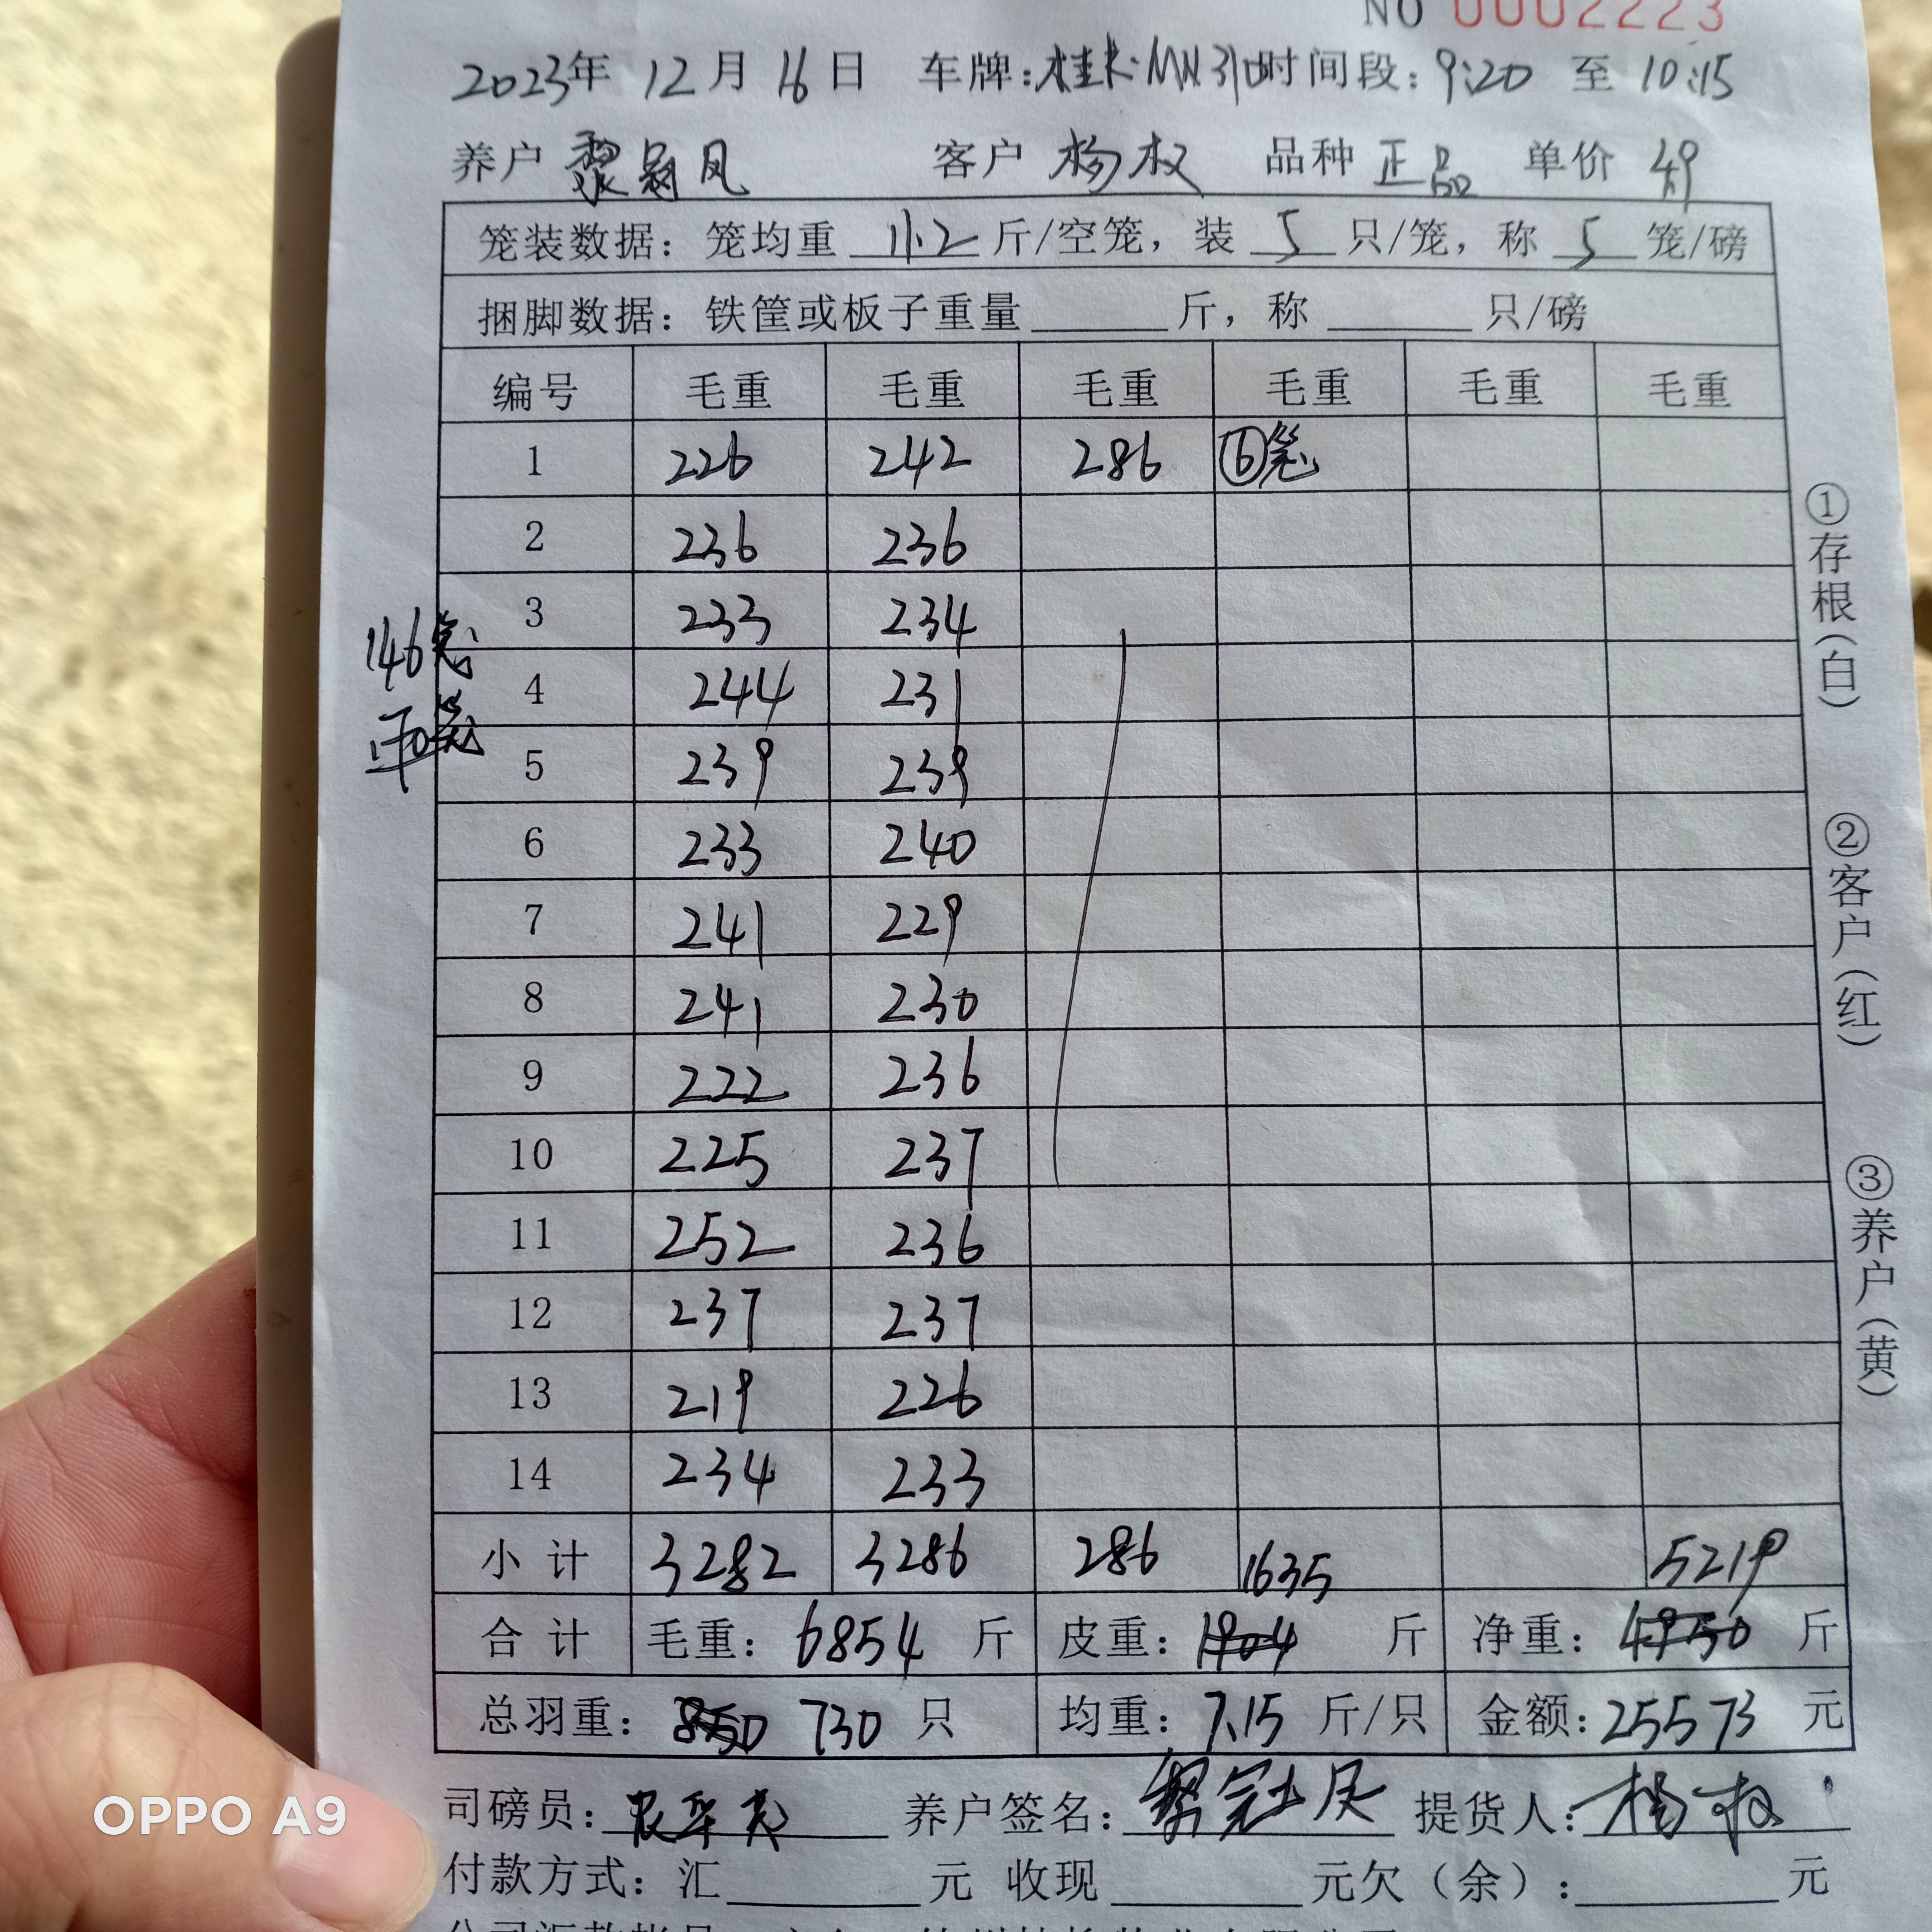 NO 0002223
2023年 12月 16日 车牌:桂K·MN310 时间段:9:20 至 10:15
养户 黎冠凤 客户 杨权 品种 正品 单价 4.9
笼装数据: 笼均重 11.2 斤/空笼, 装 5 只/笼, 称 5 笼/磅
捆脚数据: 铁筐或板子重量 斤, 称 只/磅
编号 毛重 毛重 毛重 毛重 毛重 毛重
1 226 242 286 ⑥笼
2 236 236
3 233 234
146笼
4 244 231
5 239 239
6 233 240
7 241 229
8 241 230
9 222 236
10 225 237
11 252 236
12 237 237
13 219 226
14 234 233
小计 3282 3286 286 1635 5219
合计 毛重: 6854 斤 皮重: 1904 斤 净重: 4950 斤
总羽重: 850 730 只 均重: 7.15 斤/只 金额: 25573 元
司磅员: 养户签名: 黎冠凤 提货人: 杨权
付款方式: 汇 元 收现 元欠(余): 元
①存根(白)
②客户(红)
③养户(黄)
OPPO A9